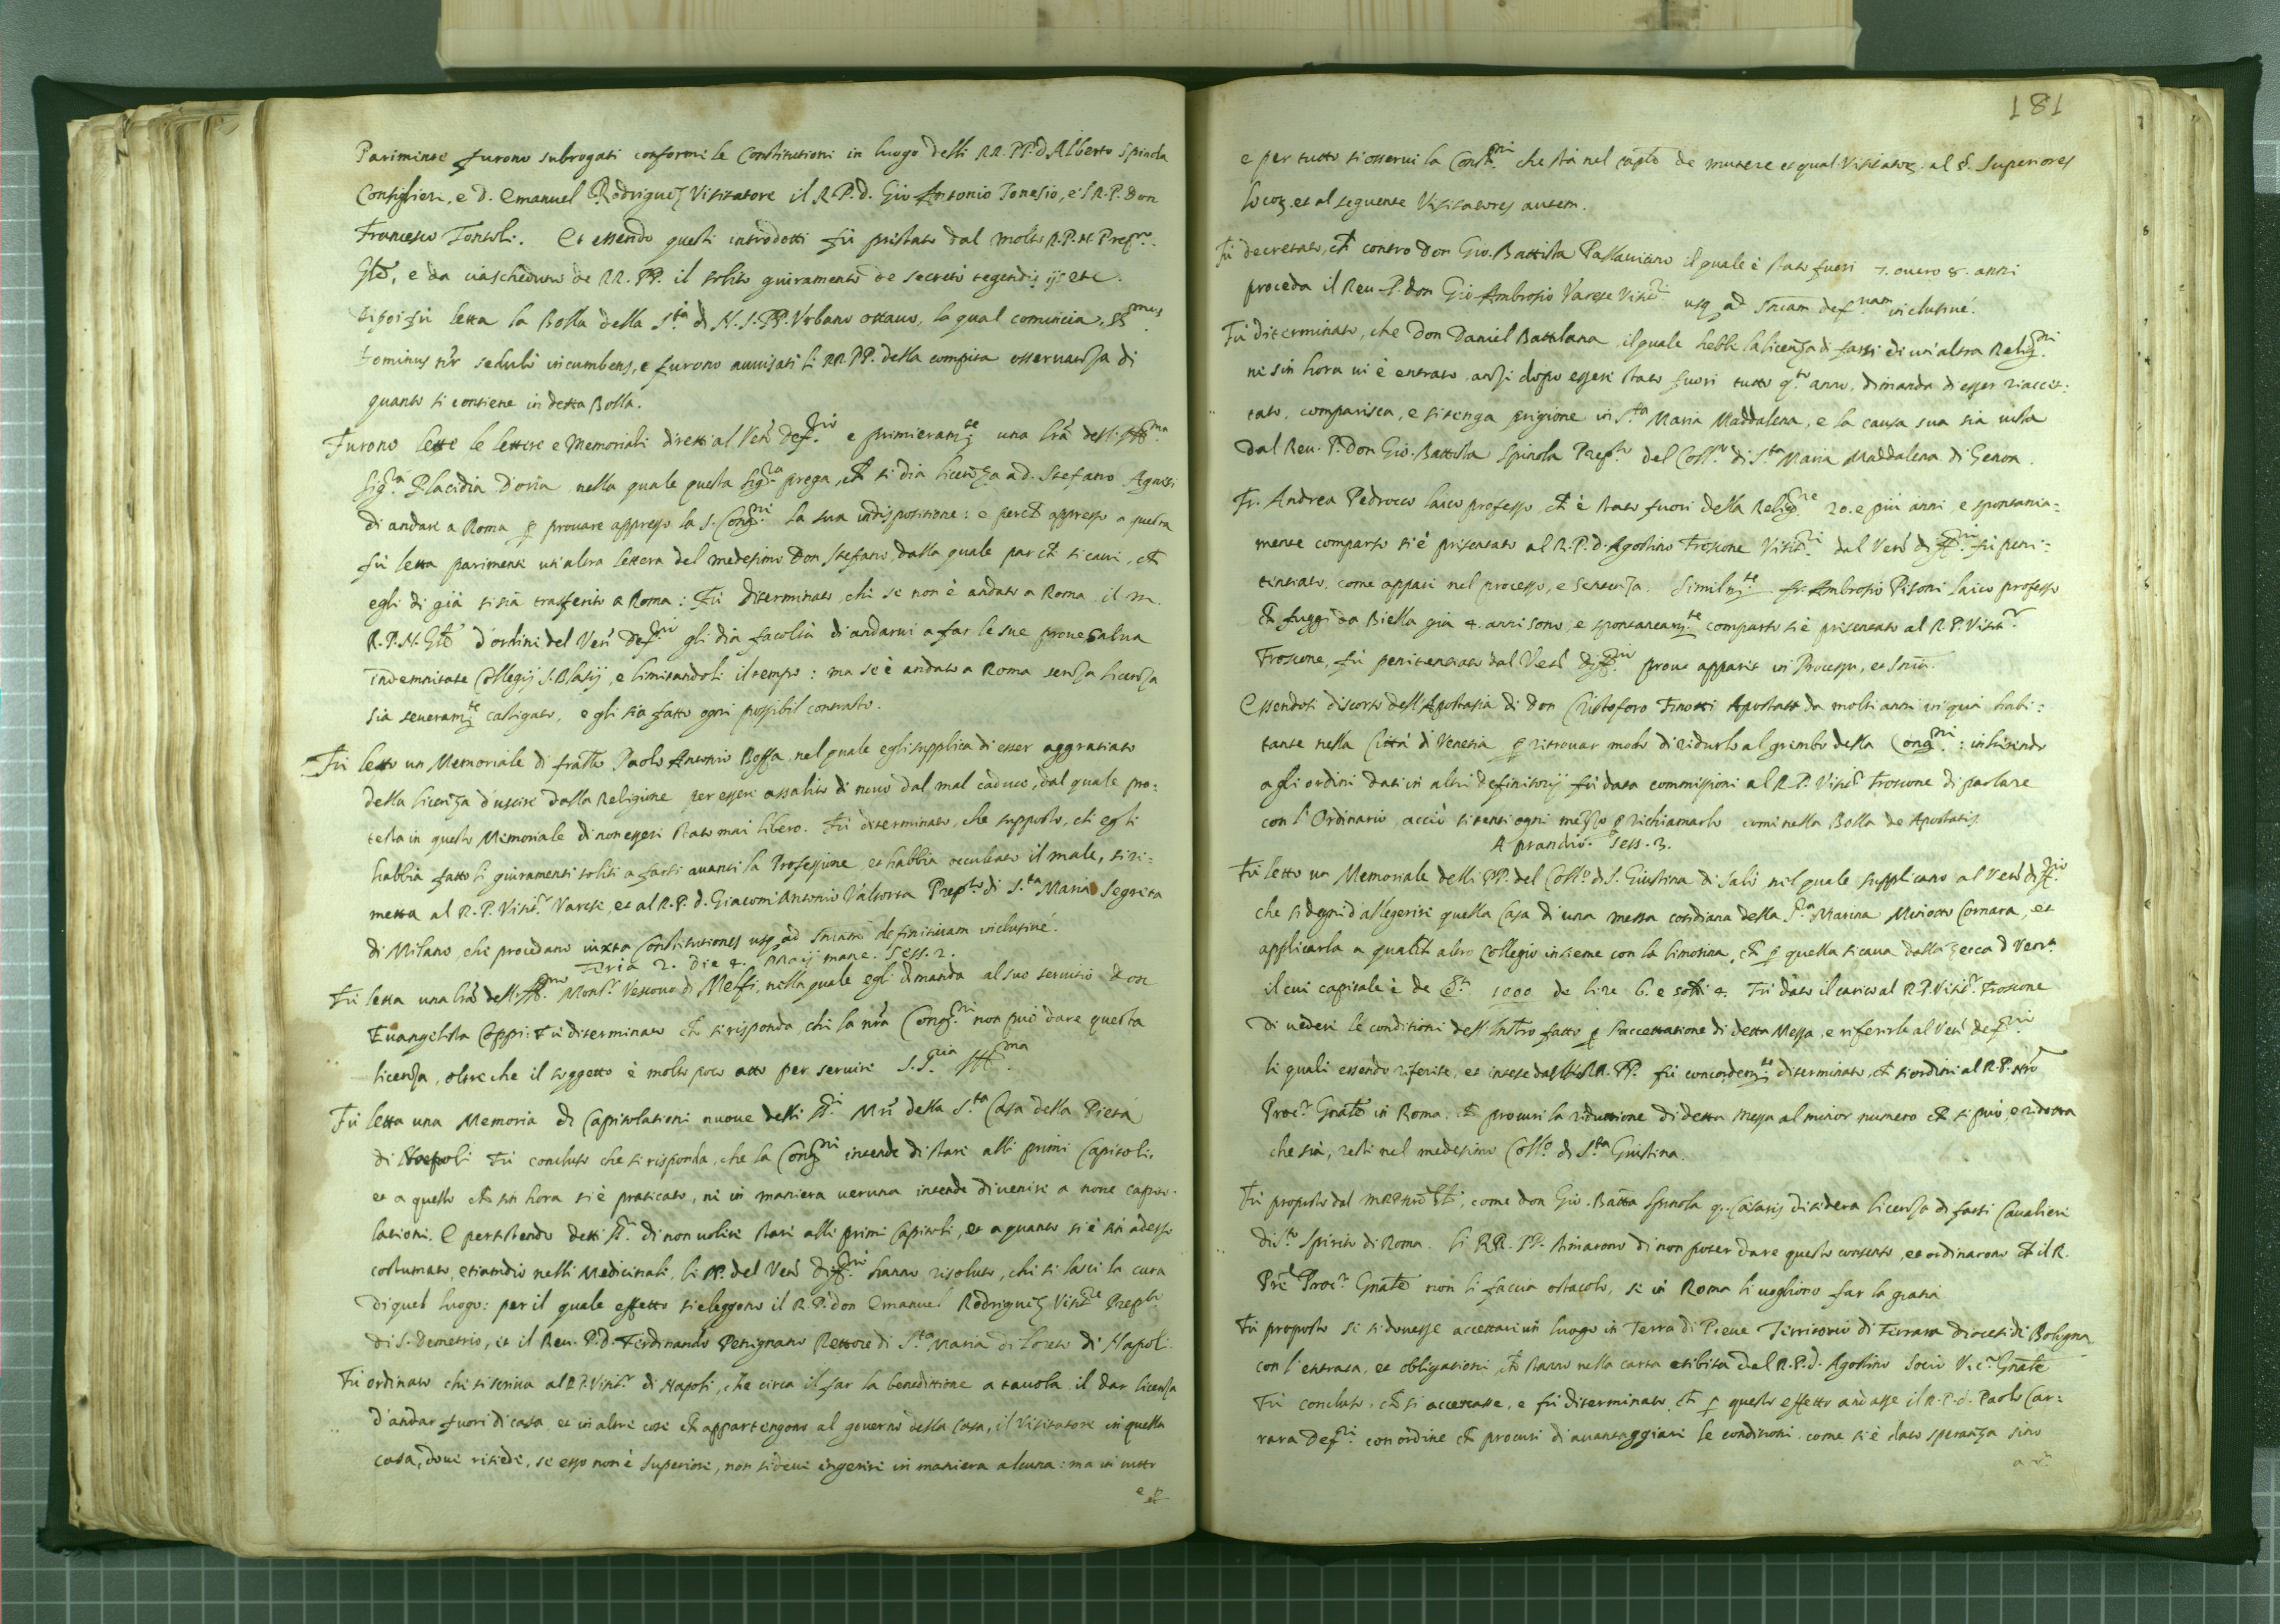 Parimente furono subrogati conforme le Constitutioni in luogo delli RR. PP. d. Alberto Spinola
Consiglieri, e d. Emanuel Rodriguez Visitatore il R. P. d. Gio Antonio Tonesio, e'l R. P. Don
Francesco Tontoli. Et essendo questi introdotti fù prestato dal molto R. P. N. Prep.to
Gñle, e da ciascheduno de RR. PP. il solito giuramento de secreto tegendis ijs etc.
Di poi fù letta la Bolla della S.ta di N. S. PP. Vrbano ottauo, la qual comincia, SS.mus
Dominus nr sedulò incumbens, e furono auuisati li RR. PP. della compita osseruanza di
quanto si contiene in detta Bolla.
Furono lette le lettere e Memoriali diretti al Ven. Def.rio e primieram.te una lrã dell' Ill.ma
Sig.ra Placidia D'oria nella quale questa Sig.ra prega, ch si dia licenza a d. Stefano Agnesi
di andare a Roma p prouare appresso la S. Cong.ne la sua indispositione: e perch appresso a questa
fù letta parimente un'altra lettera del medesimo Don Stefano, dalla quale par ch si caui, ch
egli di già si sia trasferito a Roma: Fù diterminato, che se non è andato a Roma il m.
R. P. N. Gñle d'ordine del Ven. Def.rio gli dia facoltà di andarui a far le sue proue salua
Indemnitate Collegij S. Blasij, e limitandoli il tempo: ma se è andato a Roma senza licenza
sia seueram.te castigato, e gli sia fatto ogni possibil contrasto.
Fù letto un Memoriale di fratello Paolo Antonio Bossa nel quale egli supplica di esser aggratiato
della licenza d'uscire dalla Religione per essere assalito di nouo dal mal caduco, dal quale pro:
testa in questo Memoriale di non essere stato mai libero. Fù diterminato, che supposto, ch egli
habbia fatto li giuramenti soliti a farsi auanti la Professione et habbia occultato il male, si ri:
metta al R. P. Visit.r Varese, et al R. P. d. Giacom'Antonio Valtorta Prep.to di S.ta Maria Segreta
di Milano, che procedano iuxta Constitutiones usq ad sniam definitiuam inclusiué.
Feria 2. Die 4. Maij mane. Sess. 2.
Fù letta una lrã dell' Ill.mo Mons.r Vescouo di Melfi, nella quale egli dimanda al suo seruitio Don
Euangelista Coppi: Fù diterminato ch si risponda, che la nrã Cong.ne non può dare questa
licenza, oltre che il soggetto è molto poco atto per seruire S. S.ria Ill.ma
Fù letta una Memoria di Capitolationi nuoue delli SS.ri Mri della S.ta Casa della Pietà
di Napoli Fù concluso che si risponda, che la Cong.ne intende di stare alli primi Capitoli,
et a quello ch sin hora si è praticato, ne in maniera ueruna intende di uenire a noue capito-
lationi. E persistendo detti SS.ri di non uolere stare alli primi Capitoli, et a quanto si è sin adesso
costumato, etiandio nelli Medicinali, li PP. del Ven. Diff.rio hanno risoluto, che si lasci la cura
di quel luogo: per il quale effetto si eleggono il R. P. don Emanuel Rodriguez Visit.re Prep.to
di S. Demetrio, et il Reu. P. d. Ferdinando Petrignano Rettore di S.ta Maria di Loreto di Napoli
Fù ordinato che si scriua al R. P. Visit.r di Napoli, che circa il far la benedittione a tauola, il dar licenza
d'andar fuori di casa et in altre cose ch appartengono al gouerno della Casa, il Visitatore in quella
casa, doue risiede, se esso non è Superiore, non si deue ingerire in maniera alcuna: ma in tutto
e p
181
e per tutto si osserui la Const.ne che stà nel capto de munere et qual. Visitator. al §. Superiores
locor. et al seguente Visitatores autem.
Fù decretato, ch contro Don Gio. Battista Pallauicino il quale è stato fuori 7. ouero 8. anni
proceda il Reu. P. don Gio Ambrosio Varese Visit.re usq ad sniam def.uam inclusiué.
Fù diterminato, che Don Daniel Battilana il quale hebbe la licenza di farsi di un'altra Relig.ne
ne sin hora ui è entrato, anzi dopo essere stato fuori tutto q.to anno, dimanda di esser riaccet:
tato, comparisca, e si tenga prigione in S.ta Maria Maddalena, e la causa sua sia uista
dal Reu. P. Don Gio. Battista Spinola Prep.to del Coll.o di S.ta Maria Maddalena di Genoa.
Fr. Andrea Pedrocco laico professo, ch è stato fuori della Relig.ne 20. e più anni, e spontania=
mente comparso si è presentato al R. P. d. Agostino Froscone Visit.re dal Ven. diff.rio fù peni:
tentiato, come appare nel processo, e sentenza. Similm.te fr. Ambrosio Pisoni laico professo
ch fuggì da Biella già 4. anni sono, e spontaneam.te comparso si è presentato al R. P. Visit.r
Froscone, fù penitentiato dal Ven. diff.rio prout apparet in Processu, et snia.
Essendosi discorso dell'Apostasia di Don Cristoforo Finotti Apostata da molti anni in quà habi:
tante nella Città di Venetia p ritrouar modo di ridurlo al grembo della Cong.ne: inherendo
agli ordini dati in altri definitorij fù data commissione al R. P. Visit.r Froscone di parlare
con l'Ordinario, acciò si tenti ogni mezzo p richiamarlo, come nella Bolla de Apostatis
A prandio. Sess. 3.
Fù letto un Memoriale delli PP. del Coll.o di S. Giustina di Salò nel quale supplicano al Ven. diff.rio
che si degni d'allegerire quella Casa di una messa cotidiana della S.ra Marina Minotto Cornara, et
applicarla a qualch altro Collegio insieme con la limosina, ch p quella si caua dalla zecca d Ven.a
il cui capitale è de D.ti 1000 de lire 6. e soldi 4. Fù dato il carico al R. P. Visit.r Froscone
di uedere le conditioni dell'Instro fatto p l'accettatione di detta Messa, e riferirle al Ven. def.rio
le quali essendo riferite, et intese dalli RR. PP. fù concordem.te diterminato, ch si ordini al R. P. nro
Proc.r Gñale in Roma, ch procuri la riduttione di detta messa al minor numero ch si può, e ridotta
che sia, resti nel medesimo Coll.o di S.ta Giustina.
Fù proposto dal M R P Nro Gñle, come don Gio. Batta Spinola q. Cesaris disidera licenza di farsi Caualiere
di S.to Spirito di Roma. li RR. PP. stimarono di non poter dare questo consenso, et ordinarono ch il R.
Pre Proc.r Gñale non li faccia ostacolo, se in Roma li uogliono far la gratia
Fù proposto se si douesse accettare un luogo in Terra di Pieue Territorio di Ferrara diocesi di Bologna
con l'entrata, et obligationi, ch stanno nella carta esibita dal R. P. d. Agostino Socio Vic.r Gñale
Fù concluso, ch si accettasse, e fù diterminato, ch p questo effetto andasse il R. P. d. Paolo Car:
rara Def.re con ordine ch procuri di auantaggiare le conditioni, come si è dato speranza sino